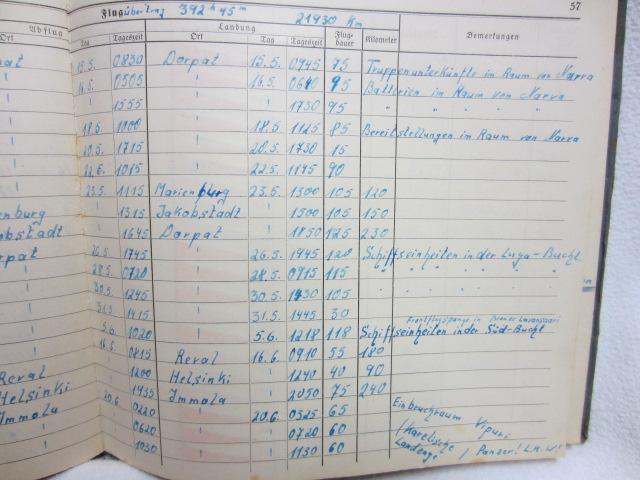 Flugübertrag 392 h 45 m 21930 Km 57
Abflug Landung
Ort Tag Tageszeit Ort Tag Tageszeit Flug-dauer Kilometer Bemerkungen
15.5. 0830 Dorpat 15.5. 0945 75 Truppenunterkünfte im Raum von Narva
16.5. 0505 " 16.5. 0640 95 Batterien im Raum von Narva
" 1555 " " 1730 95 " " " "
18.5. 1000 " 18.5. 1125 85 Bereitstellungen im Raum von Narva
20.5. 1715 " 20.5. 1730 15
22.5. 1015 " 22.5. 1145 90
23.5. 1115 Marienburg 23.5. 1300 105 120
enburg 1315 Jakobstadt " 1500 105 150
obstadt 1645 Dorpat " 1850 125 230
rpat 26.5. 1745 " 26.5. 1945 120 Schiffseinheiten in der Luga-Bucht
28.5. 0720 " 28.5. 0915 115 " " " " "
30.5. 1245 " 30.5. 1430 105
31.5. 1415 " 31.5. 1445 30
Frontflugspange in Bronze
5.6. 1020 " 5.6. 1218 118 Schiffseinheiten in der Süd-Bucht
16.6. 0815 Reval 16.6. 0910 55 180
Reval 1200 Helsinki " 1240 40 90
Helsinki 1935 Immola " 2050 75 240
Immola 20.6. 0220 " 20.6. 0325 65 Einbruchraum Vipuri
" 0620 " " 0720 60 / Karelische
" 1030 " " 1130 60 Landenge / Panzer! L.K.W!